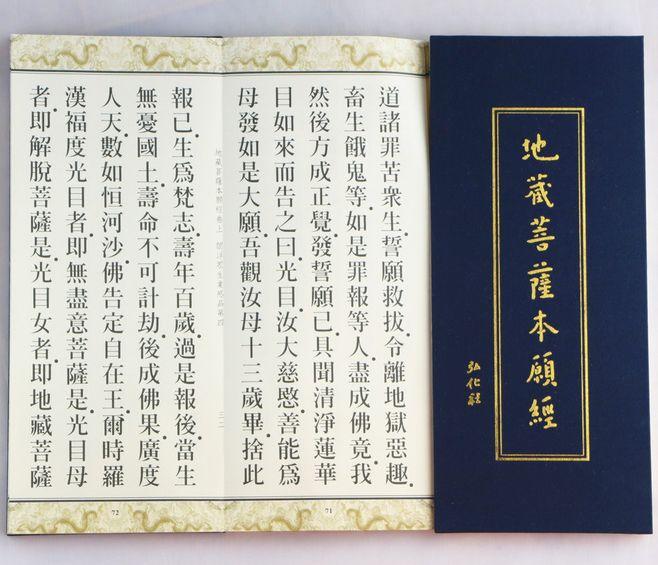 地藏菩薩本願經
弘化
道諸罪苦衆生。誓願救拔。令離地獄惡趣。
畜生餓鬼等。如是罪報等人。盡成佛竟。我
然後方成正覺。發誓願已。具聞清淨蓮華
目如來而告之曰。光目。汝大慈愍。善能爲
母發如是大願。吾觀汝母十三歲畢。捨此
71
地藏菩薩本願經卷上 閻浮眾生業感品第四 三二
報已。生爲梵志。壽年百歲。過是報後。當生
無憂國土。壽命不可計劫。後成佛果。廣度
人天。數如恒河沙。佛告定自在王。爾時羅
漢福度光目者。即無盡意菩薩是。光目母
者。即解脫菩薩是。光目女者。即地藏菩薩
72